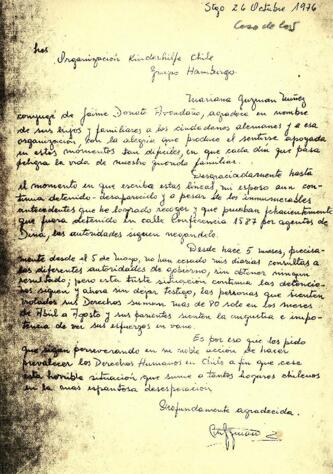 Stgo 26 Octubre 1976
Caso de los 5
Sres
Organización Kinderhilfe Chile
Grupo Hamburgo.
Mariana Guzman Nuñez
conyuge de Jaime Donato Avendaño, agradece en nombre
de sus hijos y familiares a los ciudadanos alemanes y a esa
organización, con la alegría que produce el sentirse apoyada
en estos momentos tan difíciles, en que cada día que pasa
peligra la vida de nuestro querido familiar.
Desgraciadamente hasta
el momento en que escribo estas líneas, mi esposo aun con-
tinua detenido-desaparecido y a pesar de los innumerables
antecedentes que he logrado recoger y que prueban fehacientemente
que fuera detenido en calle Conferencia 1587 por agentes de
Dina, las autoridades siguen negandolo.
Desde hace 5 meses, preci-
samente desde el 5 de Mayo, no han cesado mis diarias consultas a
las diferentes autoridades de gobierno, sin obtener ningun
resultado; pero esta triste situación continua las detencio-
nes siguen y ahora sin dejar testigo, las personas que sienten
violados sus Derechos suman mas de 80 solo en los meses
de Abril a Agosto y sus parientes sienten la angustia e impo-
tencia de ver sus esfuerzos en vano.
Es por eso que les pido
que sigan perseverando en su noble acción de hacer
prevalecer los Derechos Humanos en Chile a fin que cese
esta horrible situación que sume a tantos hogares chilenos
en la mas espantosa desesperación.
Profundamente agradecida.